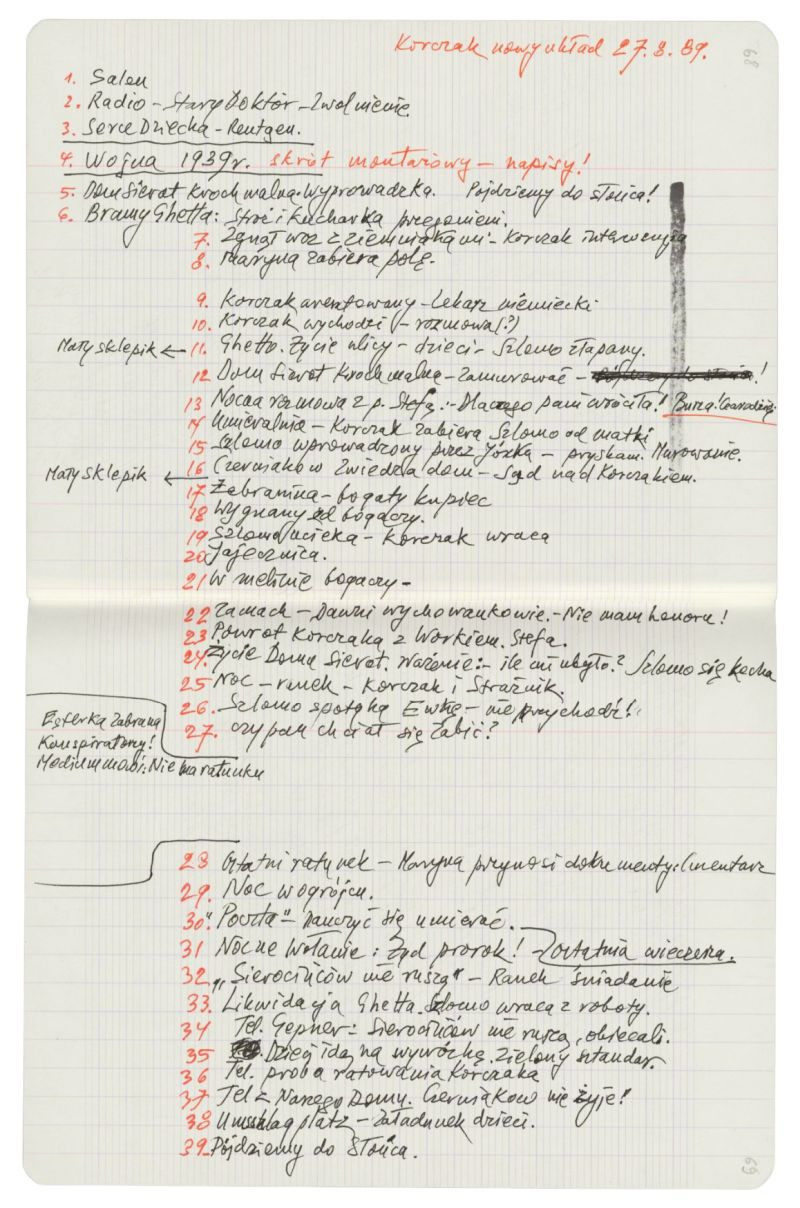 Korczak nowy układ 27.8.89.
68
1. Salon
2. Radio – Stary Doktór – Zwolnienie
3. Serce Dziecka – Rentgen.
4. Wojna 1939 r. skrót montażowy – napisy!
5. Dom Sierot Krochmalna. Wyprowadzka. Pójdziemy do słońca!
6. Bramy Ghetta: Stróż i kucharka przegonieni.
7. Zginął wóz z ziemniakami – Korczak interwencja
8. Maryna zabiera Polę.
9. Korczak aresztowany – Lekarz niemiecki
10. Korczak wychodzi (– rozmowa(?)
Mały sklepik ← 11. Ghetto. Życie ulicy – dzieci – Szlomo złapany.
12 Dom Sierot Krochmalna – Zamurować – !
13 Nocna rozmowa z p. Stefą: – Dlaczego pani wróciła! Burza!
14 Umieralnia – Korczak zabiera Szlomo od matki
15 Szlomo wprowadzony przez Józka – pryskam. Murowanie.
Mały sklepik ← 16 Czerniaków Zwiedza dom – Sąd nad Korczakiem.
17 Żebranina – bogaty kupiec
18 Wygnany od bogaczy.
19 Szlomo ucieka – Korczak wraca
20 Jajecznica.
21 W melinie bogaczy –
22 Zamach – Dawni wychowankowie. – Nie mam honoru!
23 Powrót Korczaka z Workiem. Stefa.
24. Życie Domu Sierot. Ważenie: – ile mi ubyło? Szlomo się kocha
25 Noc – ranek – Korczak i Strażnik.
26. Szlomo spotyka Ewkę – nie przychodź!
27. czy pan chciał się zabić?
Esterka Zabrana
Konspiratorzy!
Medium mówi: Nie ma ratunku
28 Ostatni ratunek – Maryna przynosi dokumenty: Cmentarz
29. Noc w ogrójcu.
30 "Poczta" – Nauczyć się umierać.
31 Nocne Wołanie: Żyd prorok! – Zostatnia wieczerza.
32 "Sierocińców nie ruszą" – Ranek śniadanie
33. Likwidacja Ghetta. Szlomo wraca z roboty.
34 Tel. Gepner: Sierocińców nie ruszą, obiecali.
35 Dzieci idą na wywózkę. Zielony sztandar.
36 Tel. próba ratowania Korczaka
37 Tel z Naszego Domu. Czerniakow nie żyje!
38 Umschlagplatz – Załadunek dzieci.
39 Pójdziemy do Słońca.
69